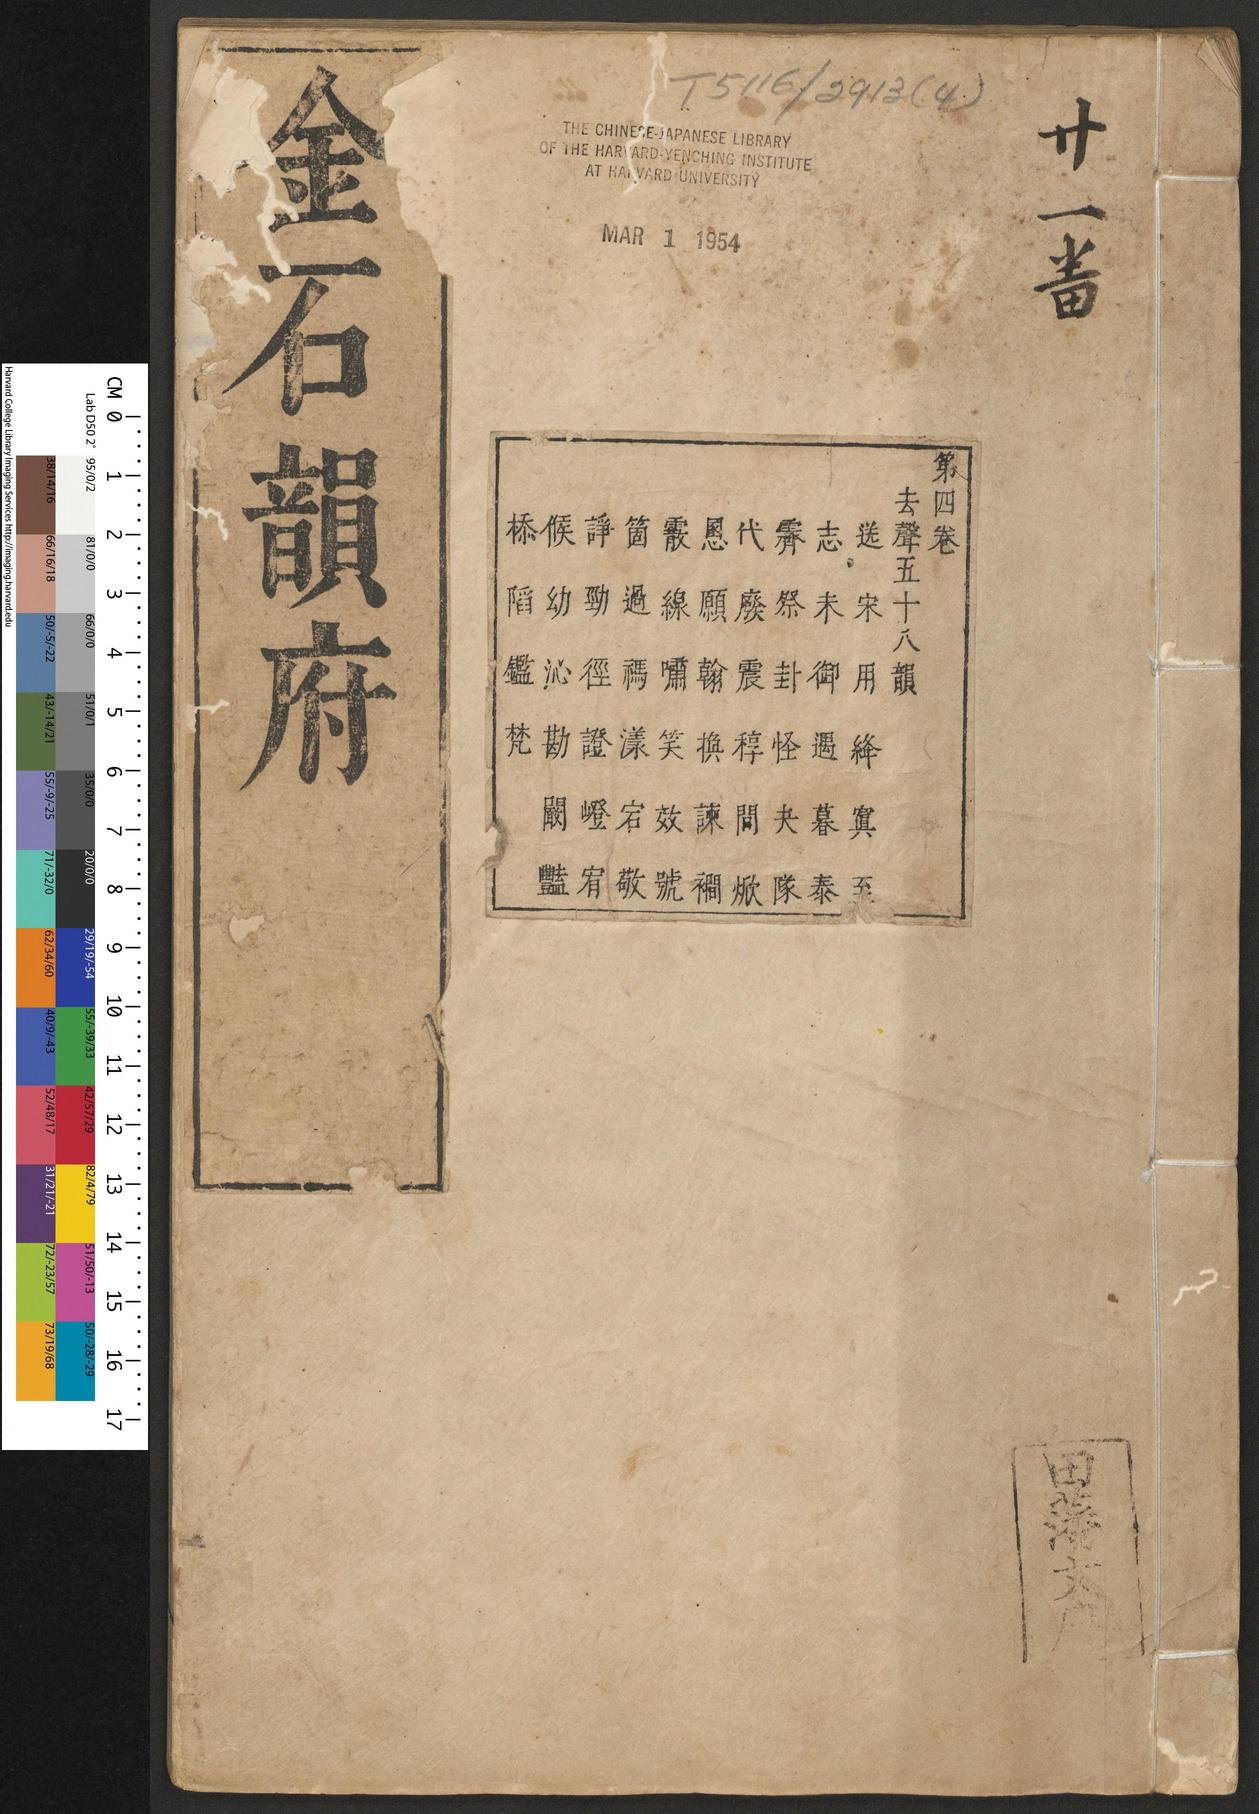 T5116/2913(4)
THE CHINESE-JAPANESE LIBRARY
OF THE HARVARD-YENCHING INSTITUTE
AT HARVARD UNIVERSITY
MAR 1 1954
廿一畨
第四卷
去聲五十八韻
送宋用絳寘至
志未御遇暮泰
霽祭卦怪夬隊
代廢震稕問焮
慁願翰換諫襉
霰線嘯笑效號
箇過禡漾宕敬
諍勁徑證嶝宥
候幼沁勘闞豔
㮇陷鑑梵
金石韻府
CM 0 1 2 3 4 5 6 7 8 9 10 11 12 13 14 15 16 17
Lab D50 2° 95/0/2 81/0/0 66/0/0 51/0/1 35/0/0 20/0/0 29/19/-54 55/-39/33 42/57/29 82/4/79 51/50/-13 50/-28/-29
38/14/16 66/16/18 50/-5/-22 43/-14/21 55/-9/-25 71/-32/0 62/34/60 40/9/-43 52/48/17 31/21/-21 72/-23/57 73/19/68
Harvard College Library Imaging Services http://imaging.harvard.edu